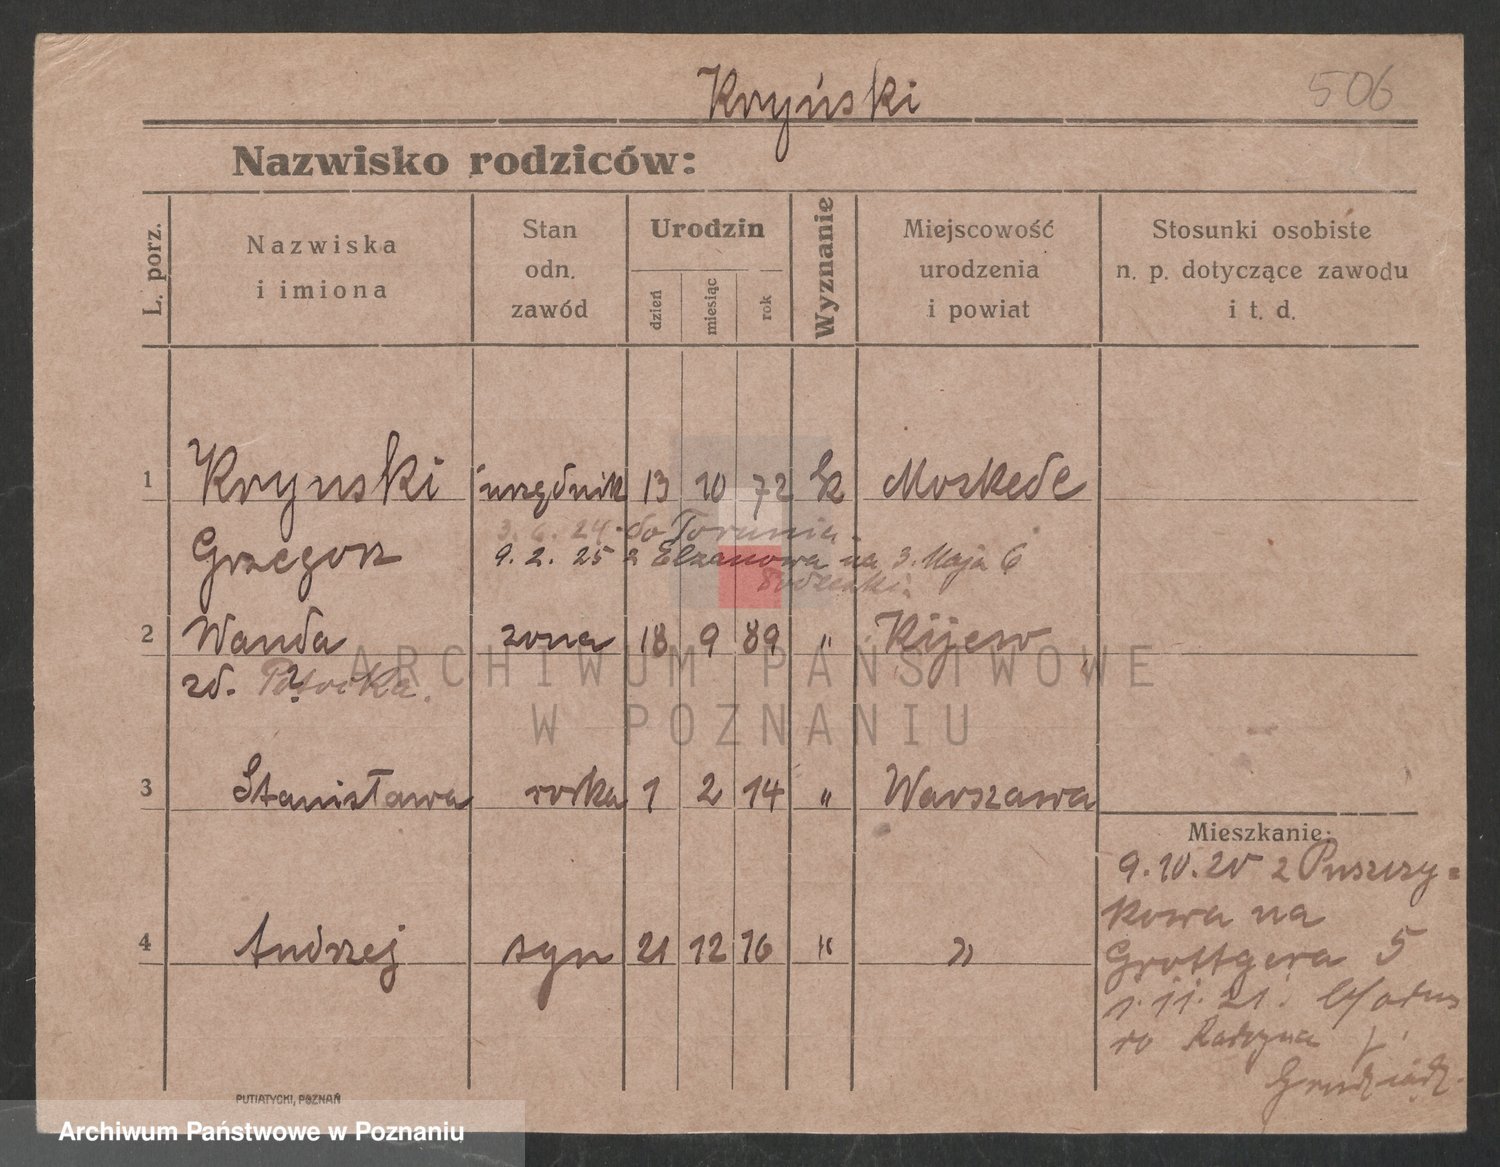 Kryński
506
Nazwisko rodziców:
L. porz.
Nazwiska
i imiona
Stan
odn.
zawód
Urodzin
dzień
miesiąc
rok
Wyznanie
Miejscowość
urodzenia
i powiat
Stosunki osobiste
n. p. dotyczące zawodu
i t. d.
1 Krynski urzędnik 13 10 72
3. 6. 24 do Torunia
Grzegorz 9. 2. 25 z Elzanowa na 3. Maja 6
2 Wanda zona 18 9 89 " Kijew
zd.
3 Stanisława " 1 2 14 " Warszawa
4 Andrzej syn 21 12 16 " "
Mieszkanie:
9.10.20 z Puszczy=
kowa na
Grottgera 5
1.11.21.
do Radzyna
Grudziądz.
PUTIATYCKI, POZNAŃ
ARCHIWUM PAŃSTWOWE
W POZNANIU
Archiwum Państwowe w Poznaniu